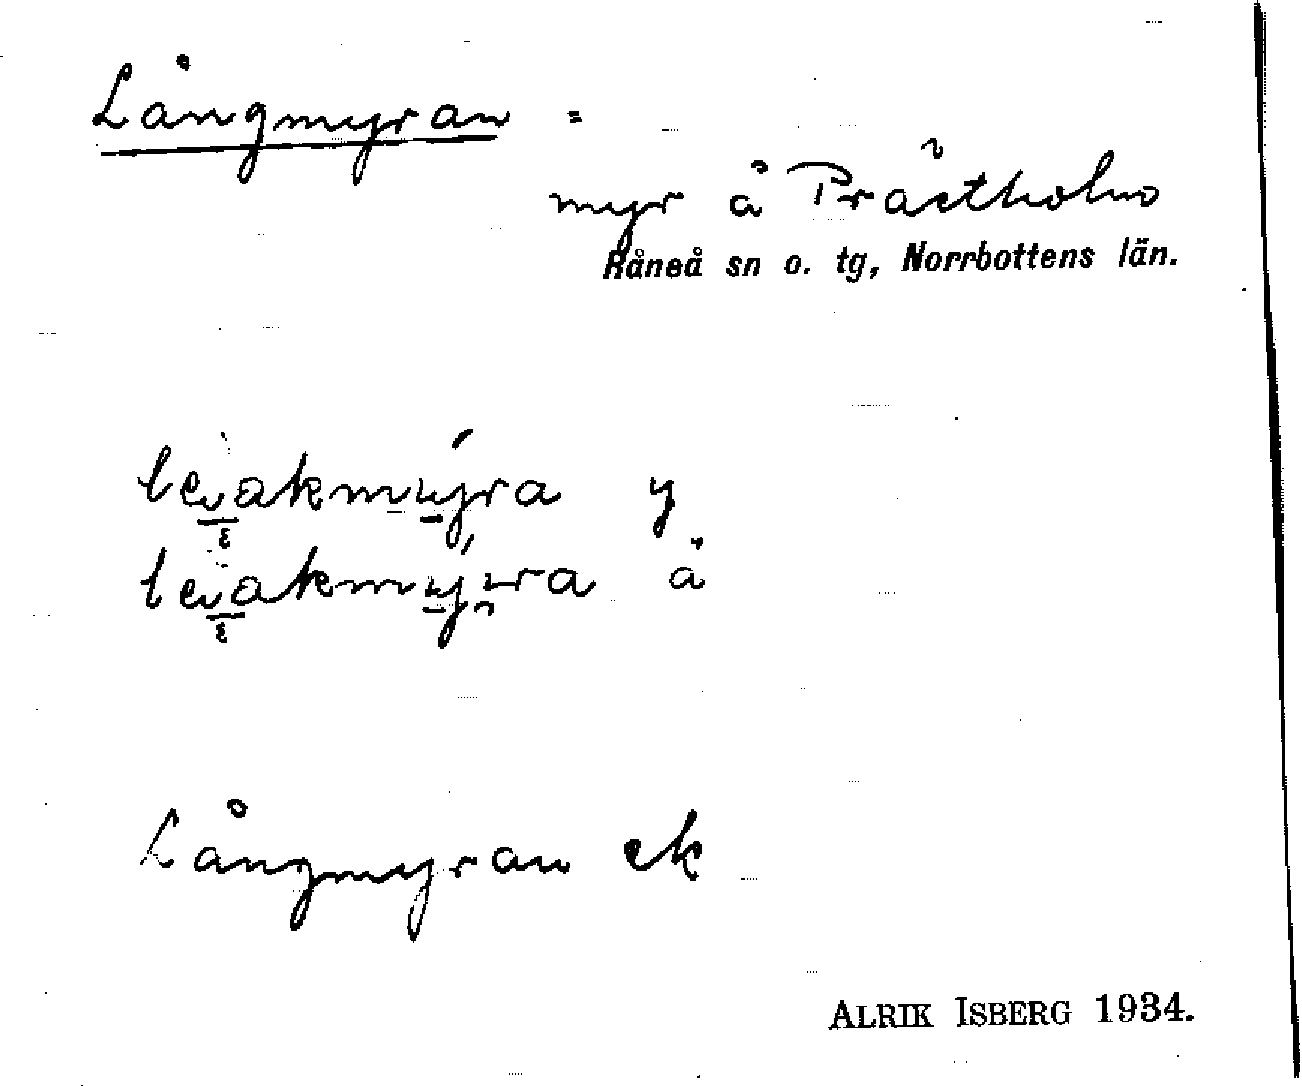 Långmyran =
myr å Prästholm
Råneå sn o. tg, Norrbottens län.
y
ä
Långmyran ek
ALRIK ISBERG 1934.